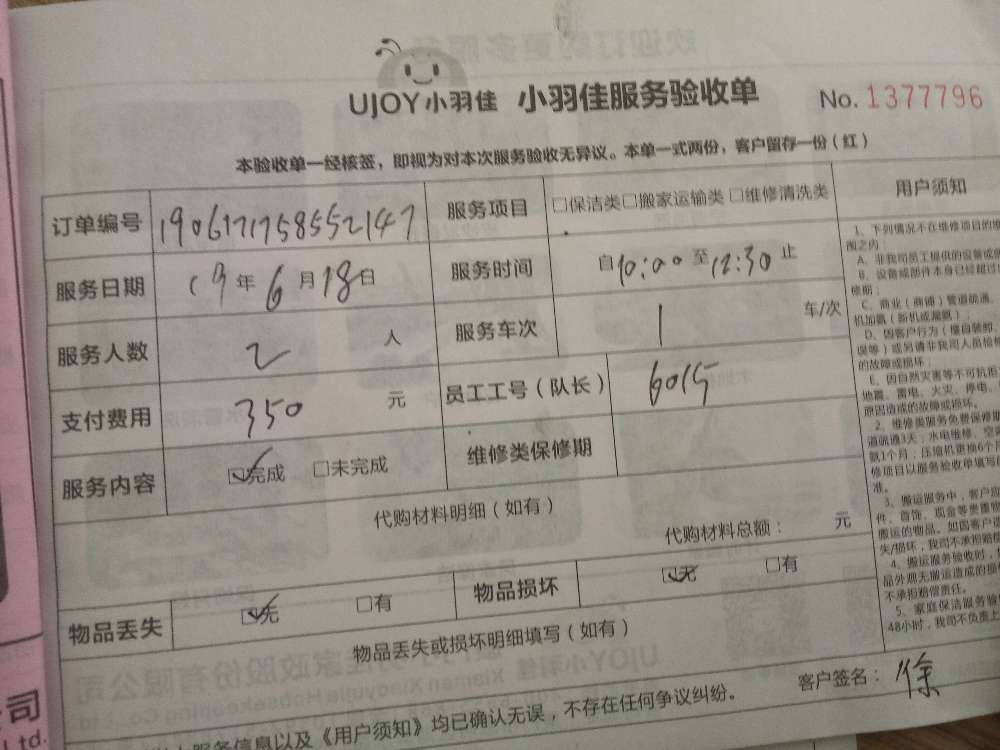 UJOY小羽佳 小羽佳服务验收单 No. 1377796
本验收单一经核签，即视为对本次服务验收无异议。本单一式两份，客户留存一份（红）
订单编号 1906171758552147 服务项目 □保洁类□搬家运输类 □维修清洗类 用户须知
服务日期 19年6月18日 服务时间 自10:00至12:30止
服务人数 2 人 服务车次 1 车/次
支付费用 350 元 员工工号（队长） 6015
服务内容 ☑完成 □未完成 维修类保修期
代购材料明细（如有）
代购材料总额： 元
物品丢失 ☑无 □有 物品损坏 ☑无 □有
物品丢失或损坏明细填写（如有）
服务信息以及《用户须知》均已确认无误，不存在任何争议纠纷。
客户签名：徐
1、下列情况不在维修项目的维
围之内：
A、非我司员工提供的设备或
B、设备或部件本身已经超过
修期；
C、商业（商铺）管道疏通、
机加氨（新机或漏氨）；
D、因客户行为（擅自装卸、
误等）或另请非我司人员检修
的故障或损坏；
E、因自然灾害等不可抗拒
地震、雷电、火灾、停电、
原因造成的故障或损坏。
2、维修类服务免费保修期
道疏通3天，水电维修、空
氨1个月；压缩机更换6个
修项目以服务验收单填写
准。
3、搬运服务中，客户应
件、首饰、现金等贵重物
搬运的物品。如因客户
失/损坏，我司不承担赔
4、搬运服务验收时，
品外观无搬运造成的损
不承担赔偿责任。
5、家庭保洁服务验
48小时，我司不负责上
司
Ltd.